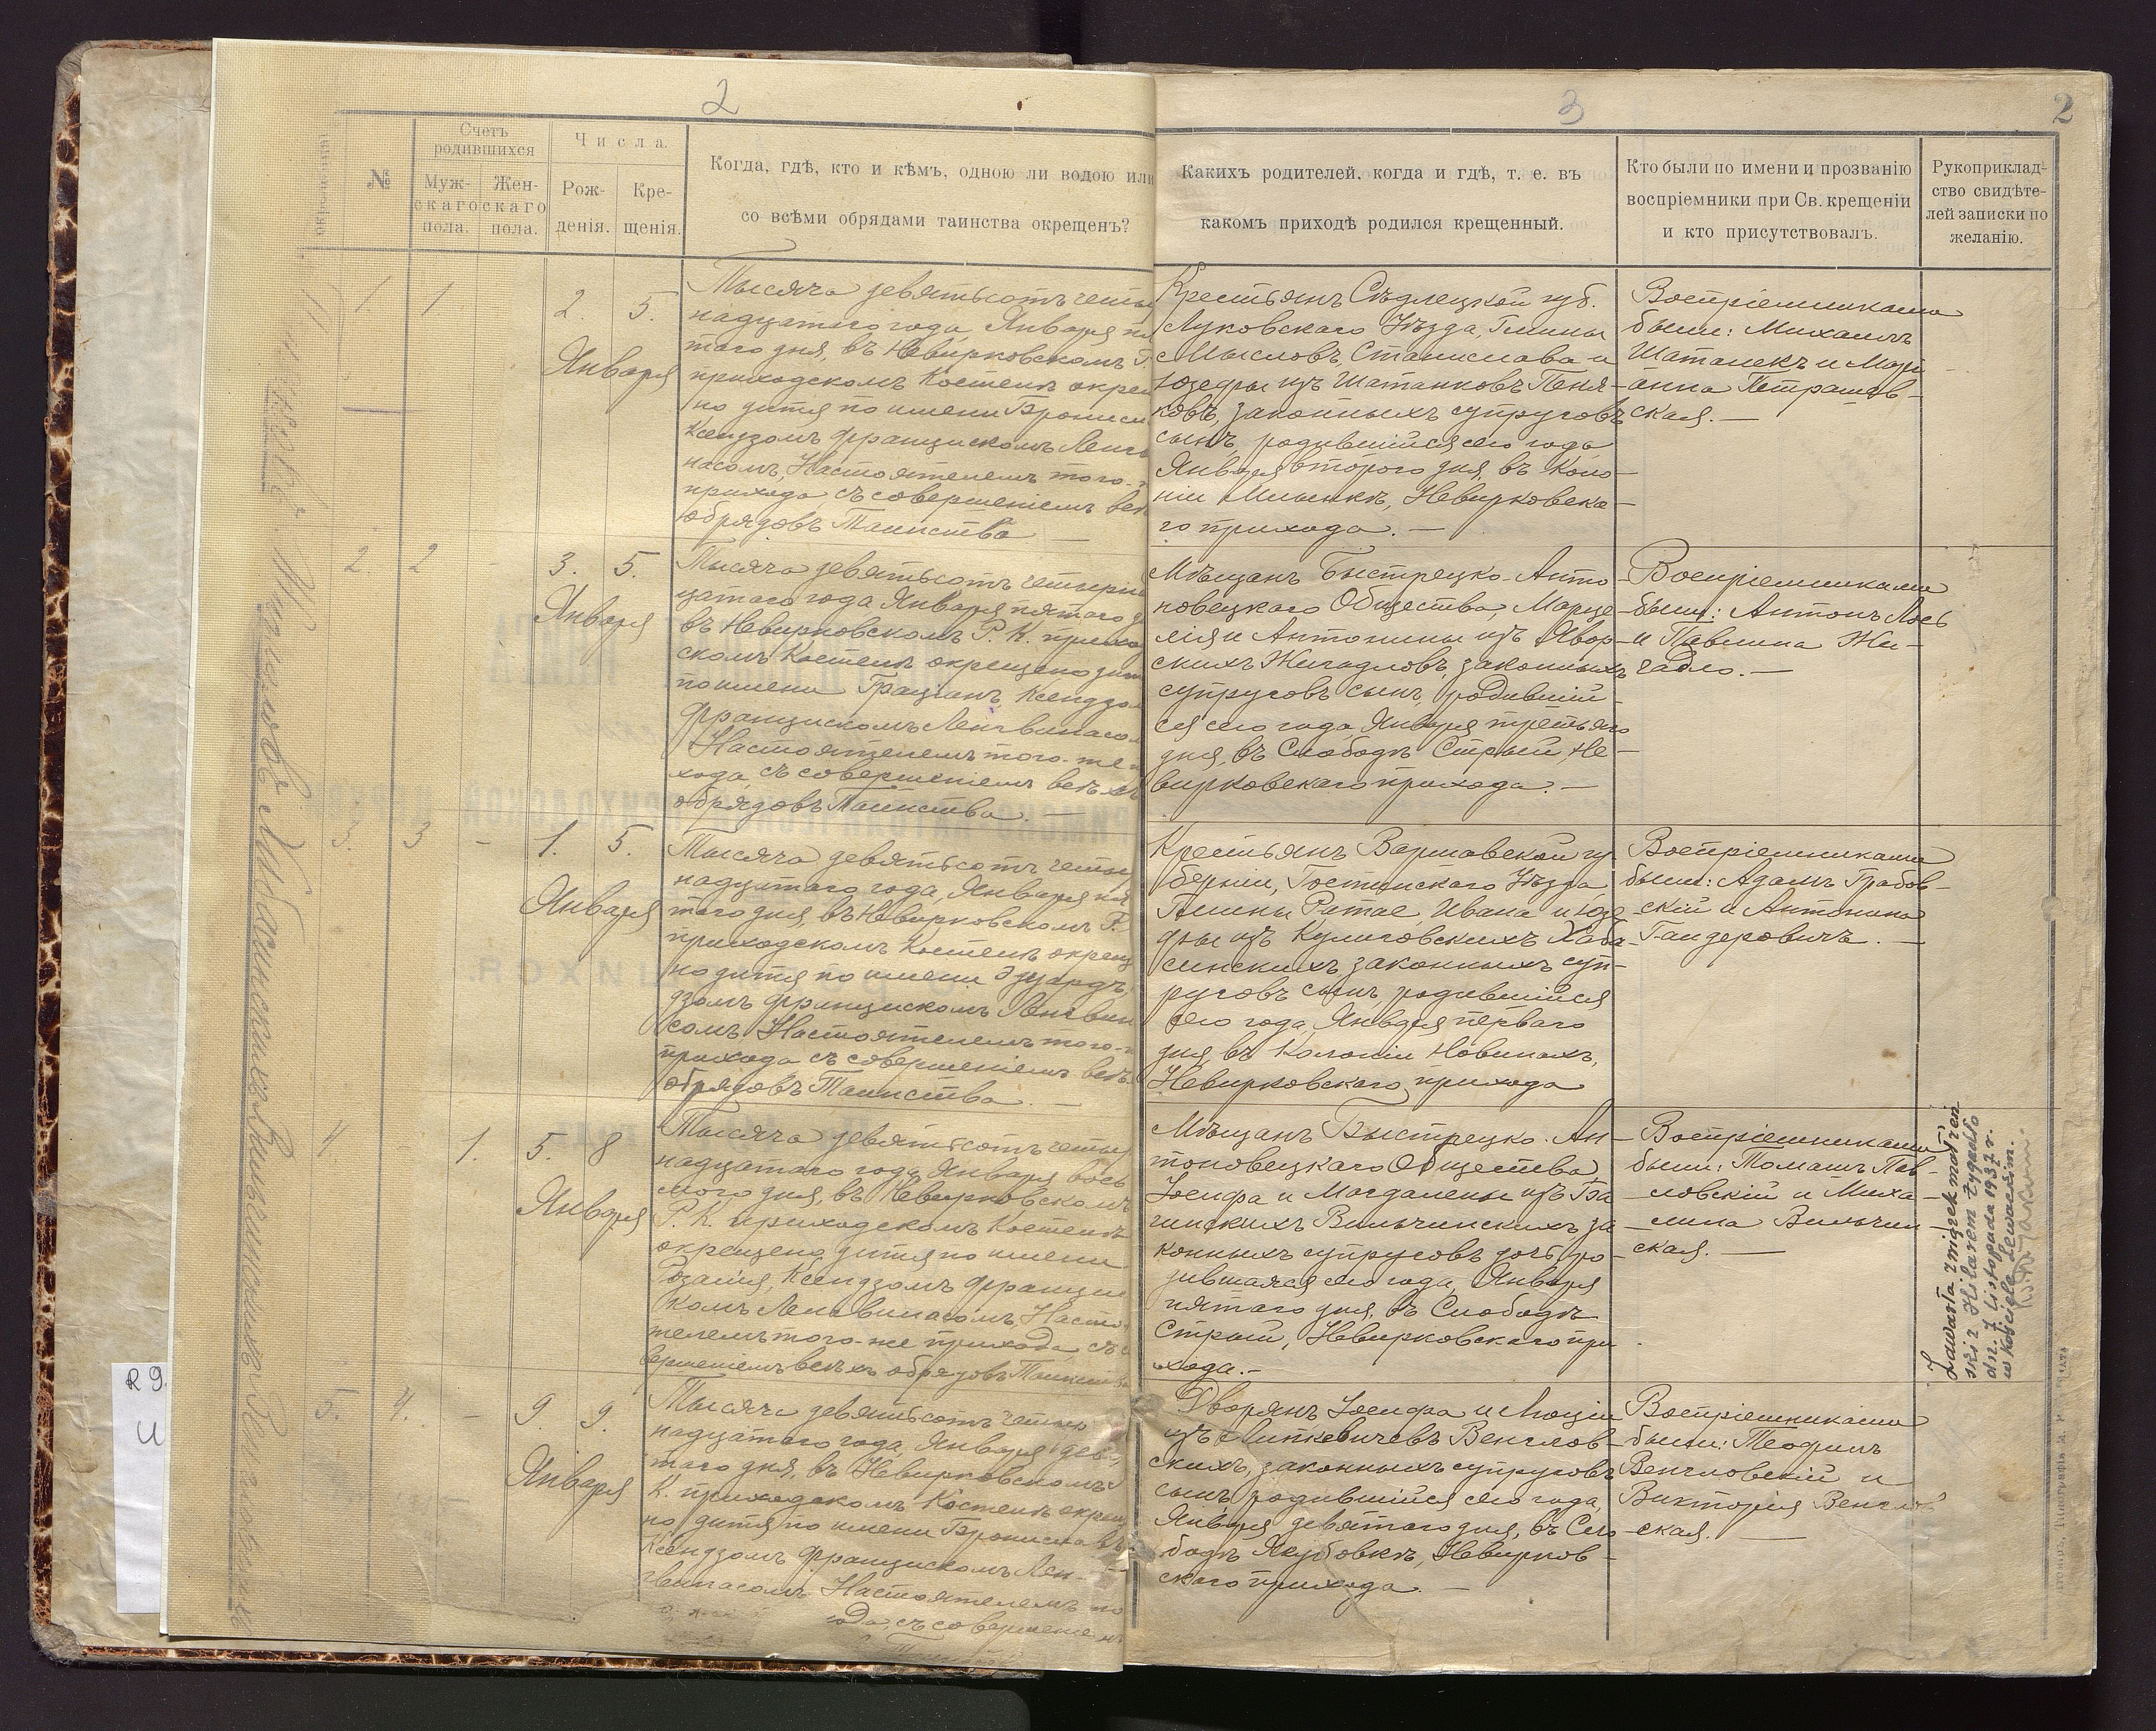 2
3
2
№
Счетъ
родившихся
Муж-
скаго
пола.
Жен-
скаго
пола.
Числа.
Рож-
денія.
Кре-
щенія.
Когда, гдѣ, кто и кѣмъ, одною ли водою или
со всѣми обрядами таинства окрещенъ?
Какихъ родителей, когда и гдѣ, т. е. въ
какомъ приходѣ родился крещенный.
Кто были по имени и прозванію
воспріемники при Св. крещеніи
и кто присутствовалъ.
Рукоприклад-
ство свидѣте-
лей записки по
желанію.
1 1 2. 5.
Января
Тысяча девятьсотъ четыр
надцатаго года, Января пя
таго дня, въ Невирковскомъ Р.
приходскомъ Костелѣ окрещ
но дитя по имени Брониси
Ксендзомъ Францискомъ Ленг
насомъ, Настоятелемъ того-
прихода съ совершеніемъ всѣ
обрядовъ Таинства —
Крестьянъ Сѣдлецкой губ.
Луковскаго Уѣзда, Гмины
Мысловъ, Станислава и
Юзефы изъ Шатанковъ Пеня-
ковъ, законныхъ супруговъ
сынъ, родившійся сего года
Января второго дня, въ Коло-
ніи Мильскѣ, Невирковска-
го прихода. —
Воспріемниками
были: Михаилъ
Шатанекъ и Марі
анна Петрашев-
ская. —
2. 2 - 3. 5.
Января
Тысяча девятьсотъ четырна
цатаго года Января пятаго д
въ Невирковскомъ Р. К. прихо
скомъ Костелѣ окрещено дит
по имени Граціанъ, Ксендзо
Францискомъ Ленгвинасо
Настоятелемъ того-же п
хода, съ совершеніемъ всѣхъ
обрядовъ Таинства. —
Мѣщанъ Быстрецко-Анто-
новецкаго Общества, Марце-
лія и Антонины изъ Явор-
скихъ Жигадловъ, законныхъ
супруговъ сынъ, родившій-
ся сего года, Января третьяго
дня, въ Слободѣ Стрый, Не-
вирковскаго прихода. —
Воспріемниками
были: Антонъ Лось
и Павлина Жи-
гадло. —
3. 3 - 1. 5.
Января
Тысяча девятьсотъ четыр
надцатаго года, Января пя
таго дня, въ Невирковскомъ Р.
приходскомъ Костелѣ окрещ
но дитя по имени Эдуардъ,
дзомъ Францискомъ Ленгвин
сомъ, Настоятелемъ того-
прихода съ совершеніемъ всѣ
обрядовъ Таинства. —
Крестьянъ Варшавской гу-
берніи, Гостинскаго Уѣзда
Гмины Ратае, Ивана и Юзе-
фы изъ Кулиговскихъ Хаба-
синскихъ, законныхъ суп-
руговъ сынъ, родившійся
сего года, Января перваго
дня, въ Колоніи Новинахъ,
Невирковскаго прихода
Воспріемниками
были: Адамъ Грабов-
скій и Антонина
Гандеровичъ. —
4 1. 5. 8
Января
Тысяча девятьсотъ четыр
надцатаго года, Января вось
мого дня, въ Невирковскомъ
Р. К. приходскомъ Костелѣ
окрещено дитя по имени
Розалія, Ксендзомъ Францис
комъ Ленгвинасомъ, Насто
телемъ того-же прихода, съ с
вершеніемъ всѣхъ обрядовъ Таинства
Мѣщанъ Быстрецко-Ан-
тоновецкаго Общества,
Іосифа и Магдалены изъ Ба
гинскихъ Вильчинскихъ, за
конныхъ супруговъ дочь, ро-
дившаяся сего года, Января
пятаго дня, въ Слободѣ
Стрый, Невирковскаго при
хода. —
Воспріемниками
были: Томашъ Пав-
ловскій и Миха-
лина Вильчин-
ская. —
Zawarła związek małżeń
ski z Hilarem Żygadło
dn. 7 listopada 1937 r.
w kościele Lewackim.
5. 4. - 9. 9.
Января
Тысяча девятьсотъ четыр
надцатаго года, Января девя-
таго дня, въ Невирковскомъ
К. приходскомъ Костелѣ окрещ
но дитя по имени Брониславъ
Ксендзомъ Францискомъ Лен-
гвинасомъ Настоятелемъ то
хода, съ совершеніемъ
Дворянъ Іосифа и Люціи
изъ Липкевичевъ Венглов-
скихъ, законныхъ супруговъ
сынъ, родившійся сего года,
Января девятаго дня, въ Сло-
бодѣ Якубовкѣ, Невирков-
скаго прихода. —
Воспріемниками
были: Теофилъ
Венгловскій и
Викторія Венглов
ская. —